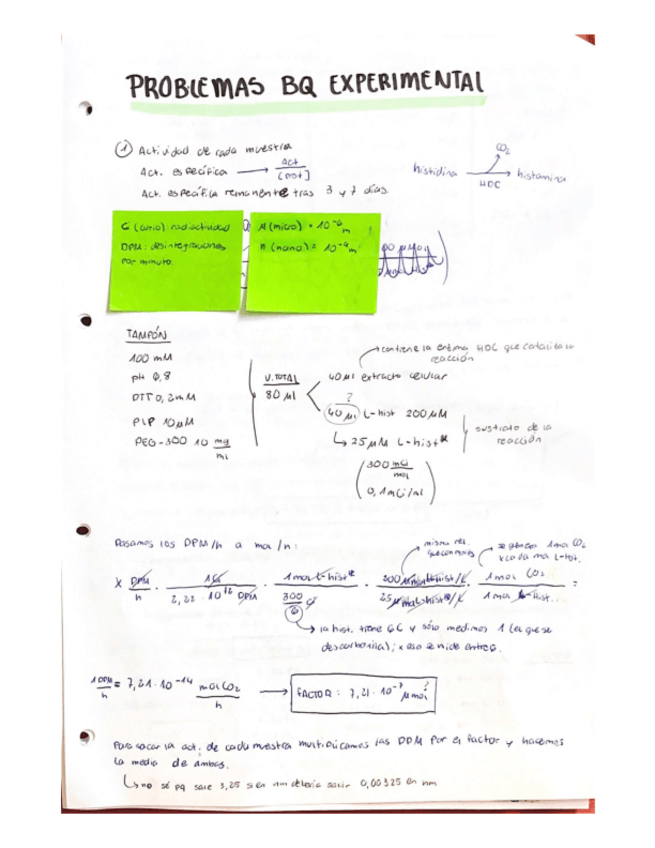 PROBLEMAS BQ EXPERIMENTAL
① Actividad de cada muestra
Act. específica → Act / [prot]
Act. específica remanente tras 3 y 7 días.
histidina → histamina
CO2
HDC
Ci (curio): radiactividad
DPM: desintegraciones
por minuto.
µ (micro) = 10⁻⁶ m
n (nano) = 10⁻⁹ m
TAMPÓN
100 mM
pH 6,8
DTT 0,2 mM
PLP 10 µM
PEG-300 10 mg/ml
V. TOTAL
80 µl
contiene la enzima HDC que cataliza la
reacción
40 µl extracto celular
?
40 µl L-hist 200 µM
↳ 25 µM L-hist*
(300 mCi/mol
0,1 mCi/ml)
sustrato de la
reacción
Pasamos los DPM/h a mol/h:
misma rel.
se genera 1 mol CO2
x cada mol L-hist.
x DPM/h · 1 Ci / 2,22 · 10¹² DPM · 1 mol L-hist* / 300/6 Ci · 200 µmol L-hist/L / 25 µmol L-hist*/L · 1 mol CO2 / 1 mol L-hist =
↳ la hist. tiene 6C y sólo medimos 1 (la que se
descarboxila); x eso se mide entre 6.
1 DPM/h = 7,21 · 10⁻¹⁴ mol CO2/h → FACTOR: 7,21 · 10⁻⁷ µmol ?
Para sacar la act. de cada muestra multiplicamos las DPM por el factor y hacemos
la media de ambas.
↳ no sé pq sale 3,25 si en nm debería salir 0,00325 en nm